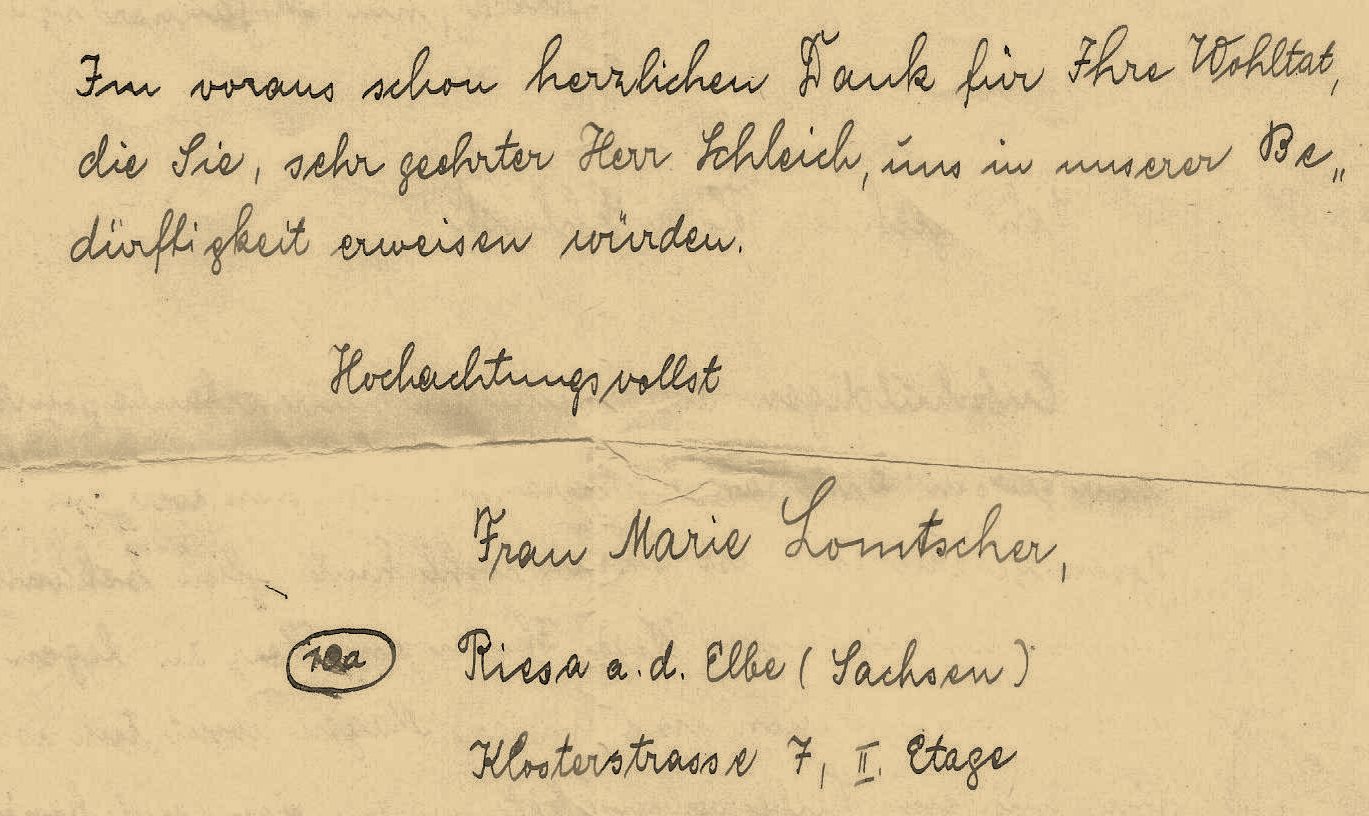 Im voraus schon herzlichen Dank für Ihre Wohltat,
die Sie, sehr geehrter Herr Schleich, uns in unserer Be„
dürftigkeit erweisen würden.
Hochachtungsvollst
Frau Marie Lomtscher,
10a Riesa a. d. Elbe (Sachsen)
Klosterstrasse 7, II. Etage